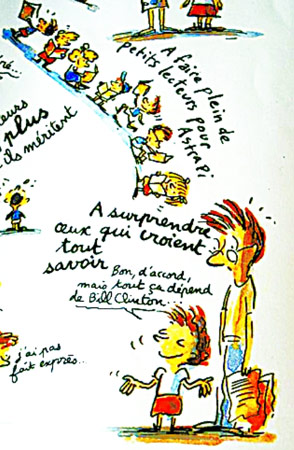 A faire plein de
petits lecteurs pour
Astrapi
plus
ils méritent
A surprendre
ceux qui croient
tout
savoir
Bon, d'accord,
mais tout ça dépend
de Bill Clinton...
j'ai pas
fait exprès...